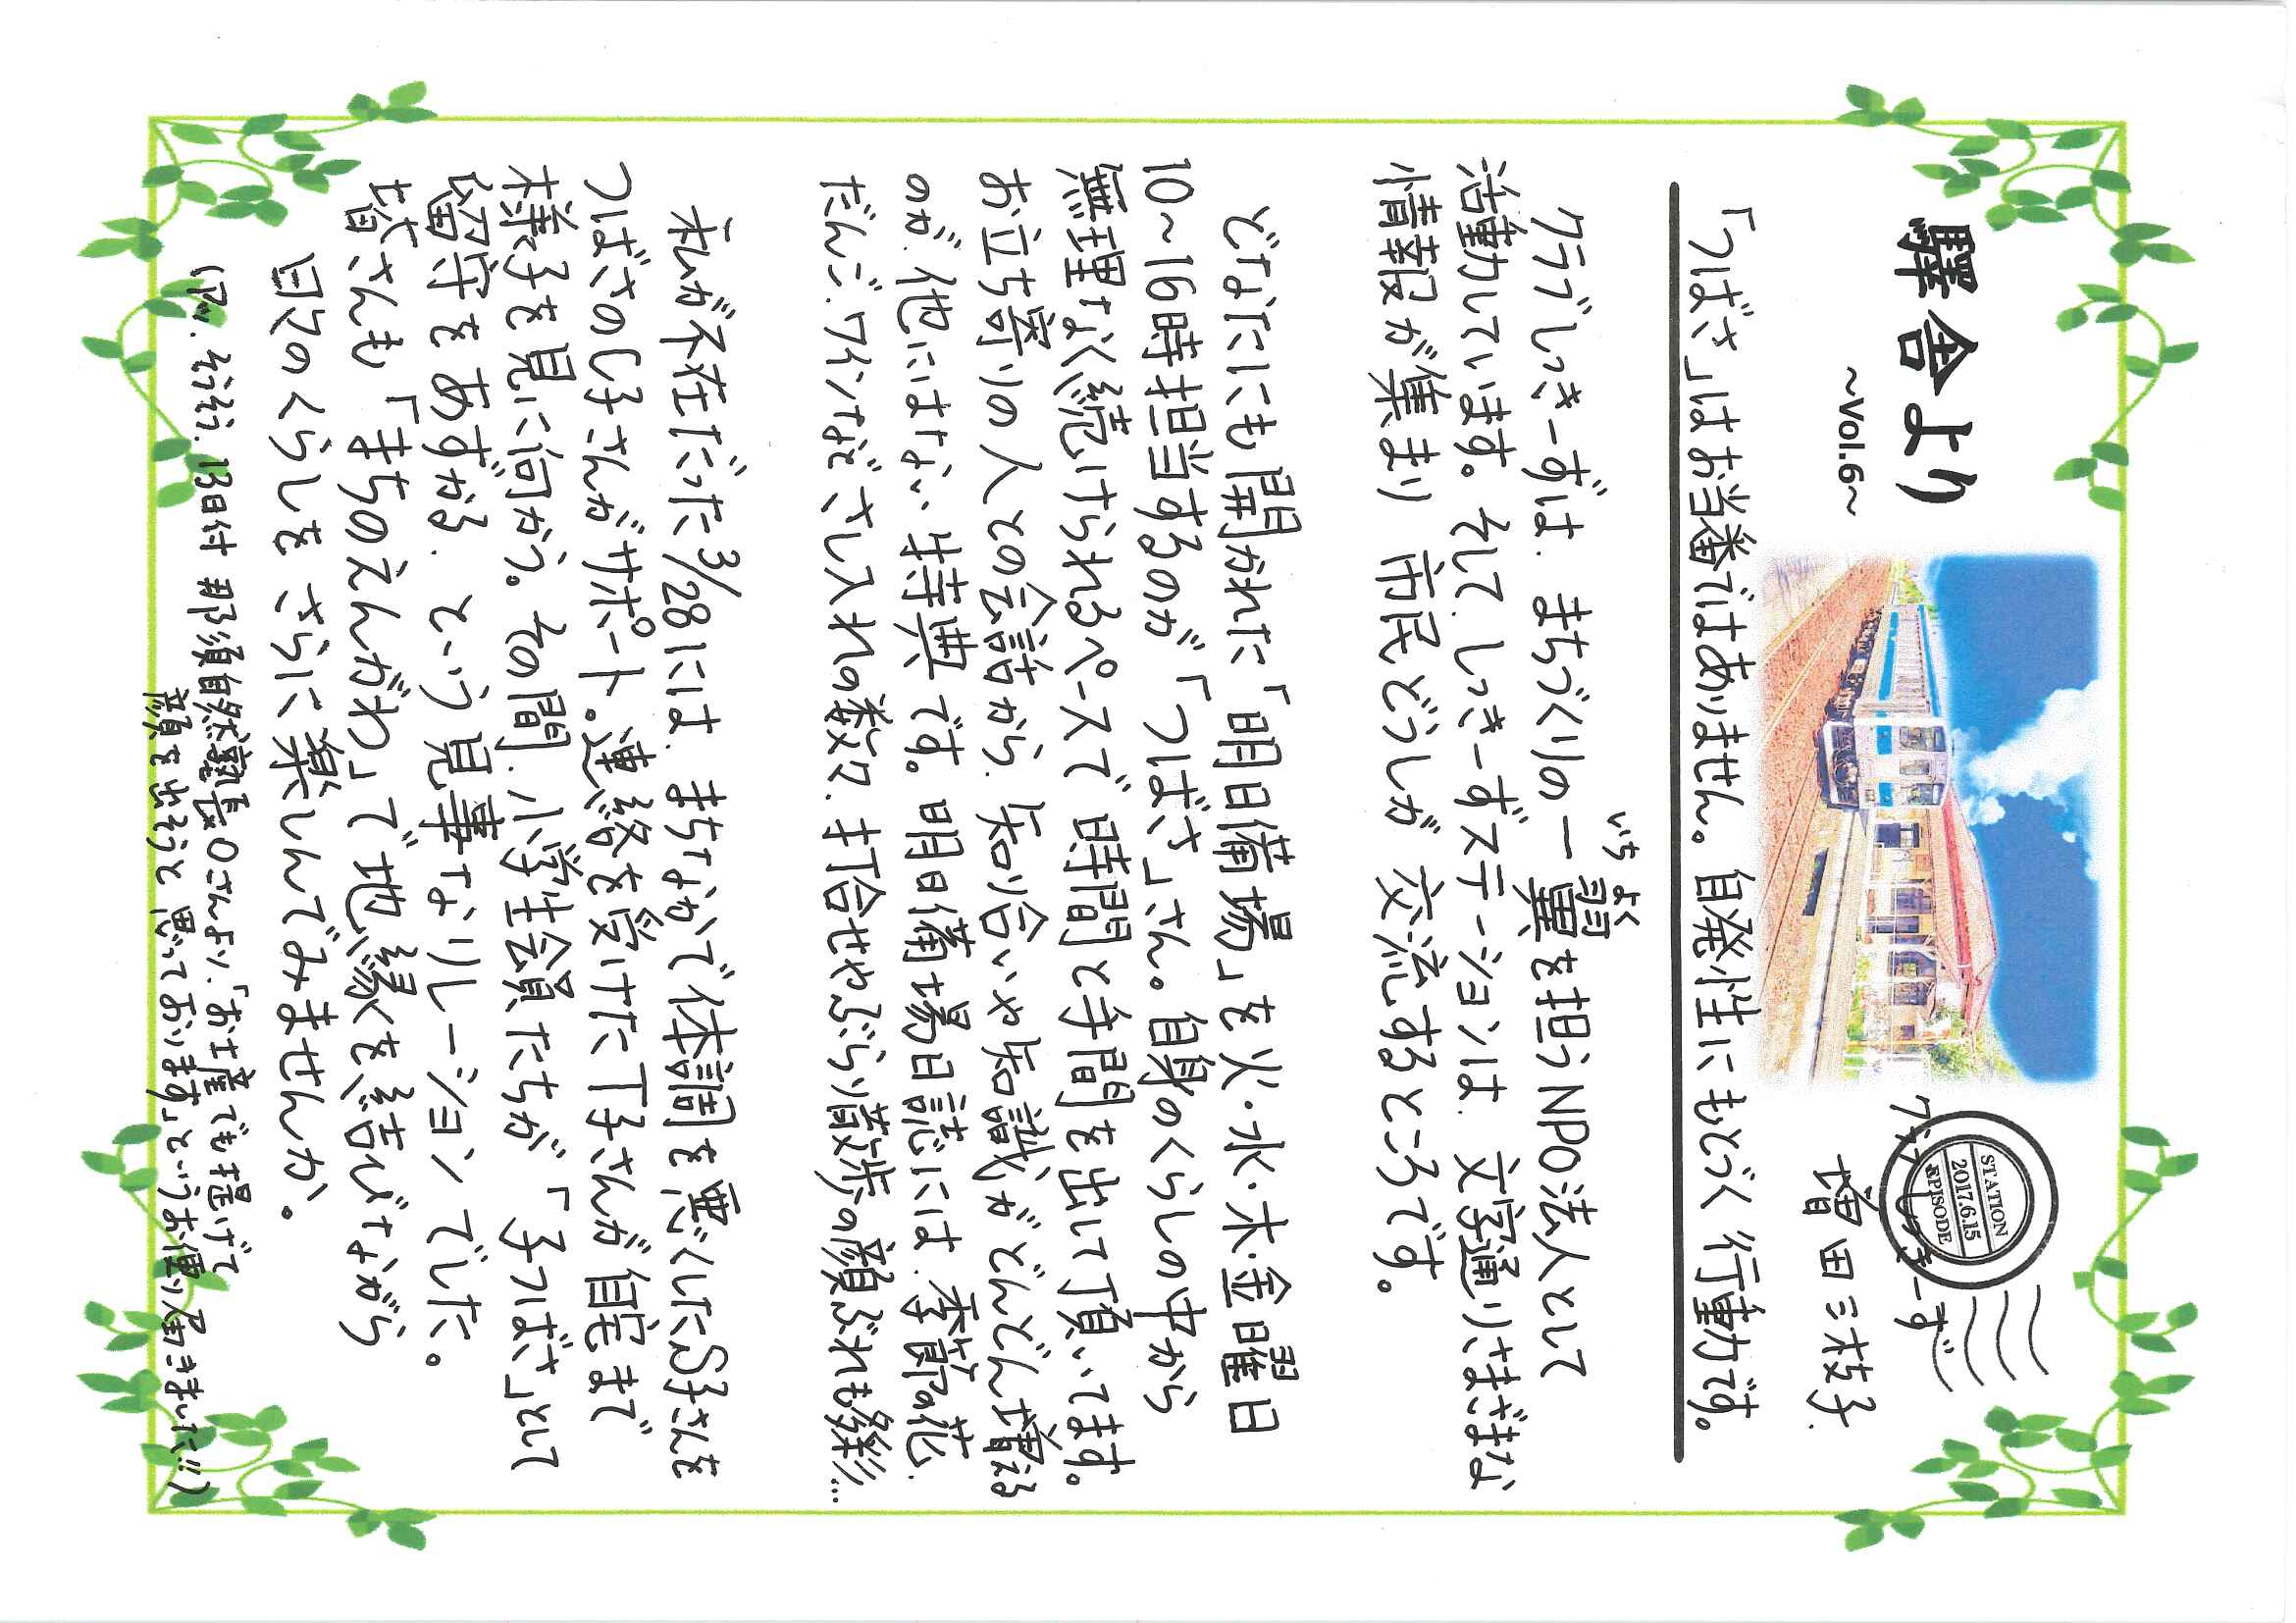 驛舎より
～Vol.6～
STATION
2017.6.15
EPISODE
クラブしっきーず
増田三枝子
「つばさ」はお当番ではありません。自発性にもとづく行動です。
クラブしっきーずは、まちづくりの一翼を担うNPO法人として
いちよく
翼
活動しています。そして、しっきーずステーションは、文字通りさまざまな
情報が集まり 市民どうしが 交流するところです。
どなたにも開かれた「明日備場」を火・水・木・金曜日
10～16時担当するのが「つばさ」さん。自身のくらしの中から
無理なく続けられるペースで 時間と手間を出して頂いてます。
お立ち寄りの人との会話から、知り合いや知識がどんどん増える
のが、他にはない特典です。明日備場日誌には、季節の花、
だんご、ワインなどさし入れの数々、打合せやぶらり散歩の顔ぶれも多彩…
私が不在だった3/28には、まちなかで体調を悪くしたS子さんを
つばさのC子さんがサポート。連絡を受けたT子さんが自宅まで
様子を見に向かう。その間、小学生会員たちが「子つばさ」として
留守をあずかる、という見事なリレーションでした。
皆さんも「まちのえんがわ」で地縁を結びながら
日々のくらしをさらに楽しんでみませんか。
そうそう、13日付 那須自然塾長Oさんより、「お土産でも提げて
顔を出そうと思っております」というお便り届きました!!)